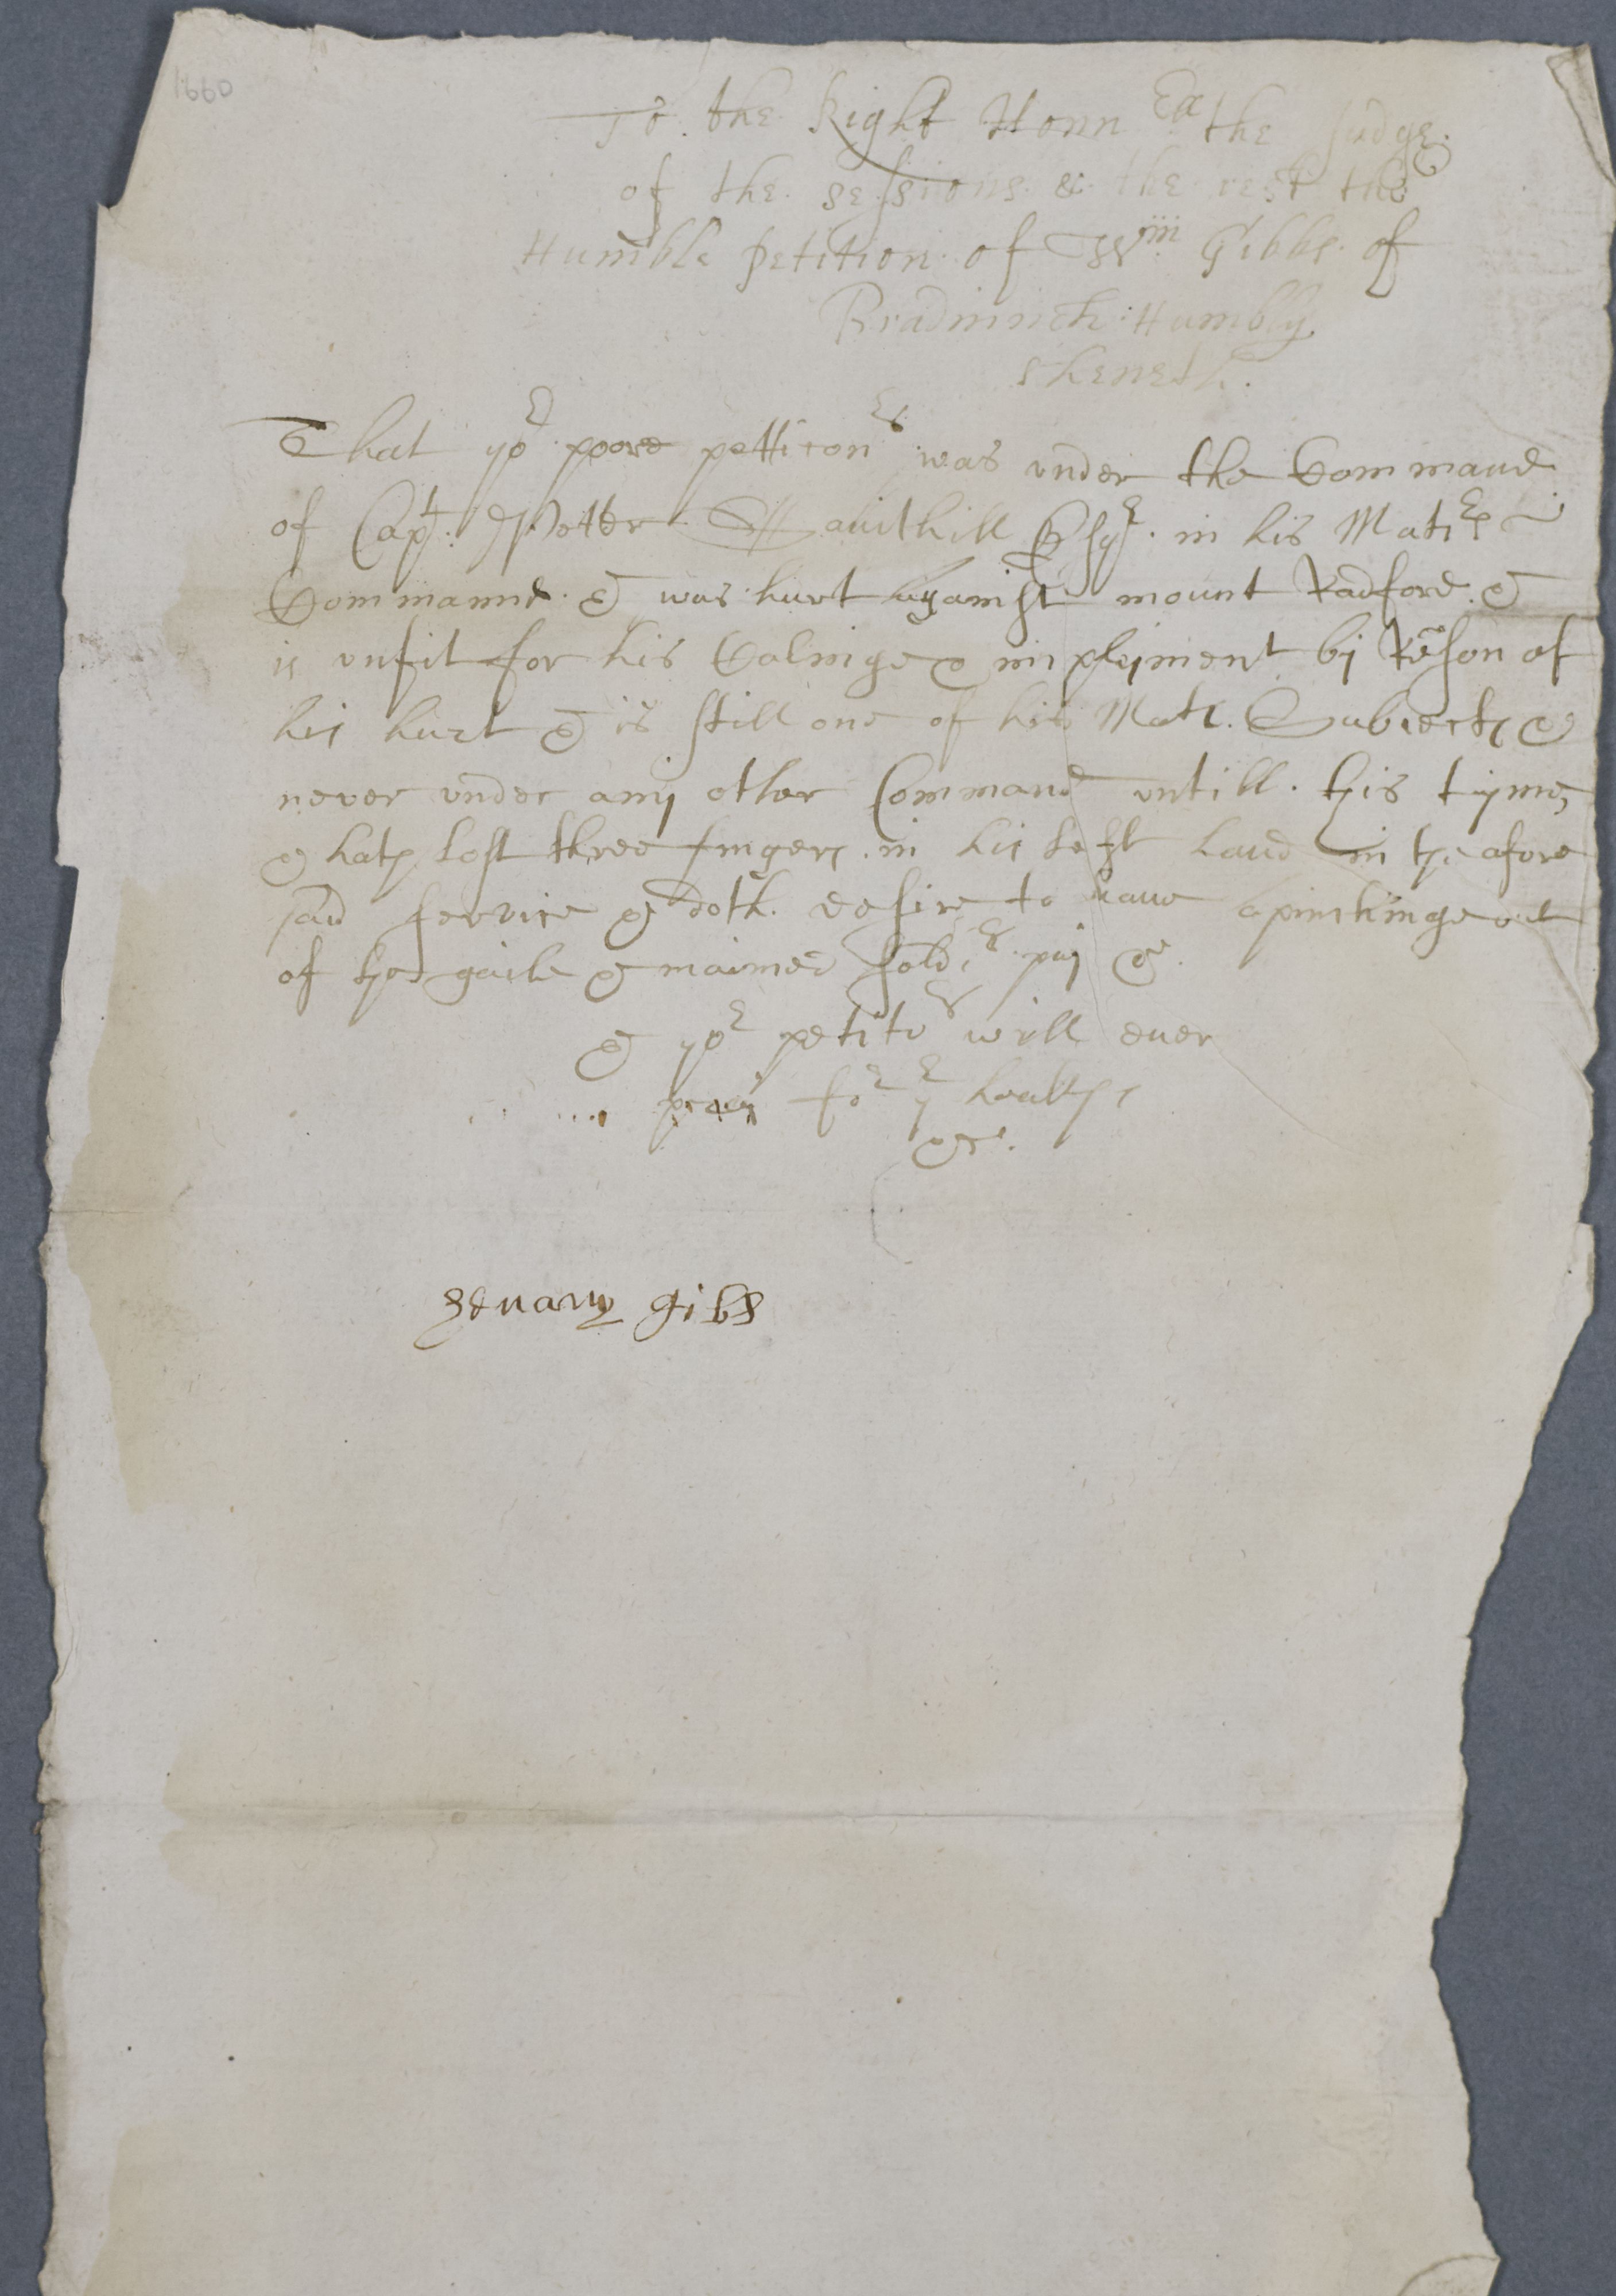 1660
To. the. Right Honn the Judge.
of the. sessions. & the rest the
Humble petition. of Wm Gibbs. of
Bradninch: Humbly.
sheweth.
That yor poore petticonr was vnder the Command
of Capt: Petter Esqr. in his Maties
Commannd. & was hurt against mount Radford. &
is vnfit for his Calinge & imployment by Reson of
his hurt & is still one of his Matis. Subiects &
never vnder any other Command vntill. this tyme,
& hath lost three fingers. in his left hand in the afore
said service & doth. desire to haue a pinchinge out
of the gaile & maimed soldrs pay &
& yor petitr will euer
pray for yr health
&c.
Henary gibs